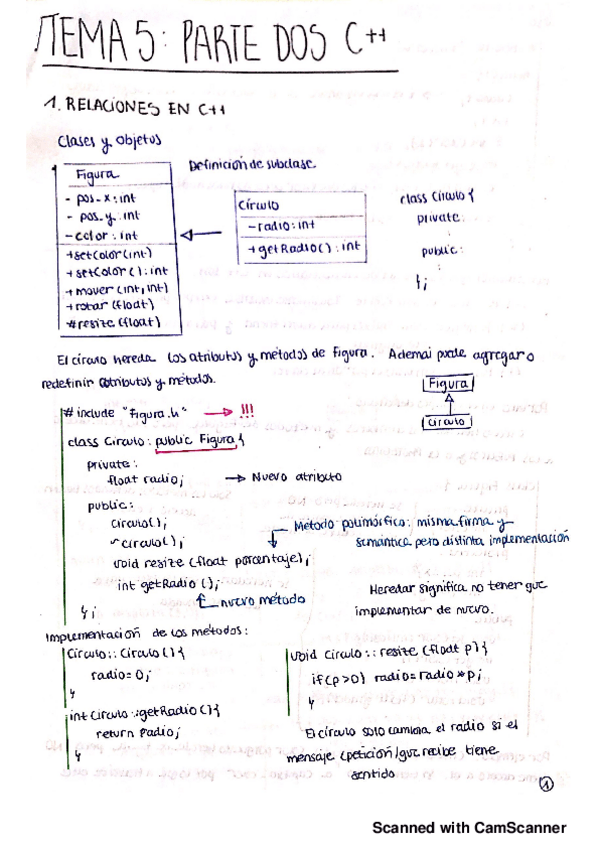 TEMA 5: PARTE DOS C++
1. RELACIONES EN C++
Clases y objetos
Figura
- pos_x: int
- pos_y: int
- color: int
+setColor(int)
+setColor(): int
+mover(int, int)
+rotar(float)
#resize(float)
Definición de subclase.
Círculo
- radio: int
+getRadio(): int
class Circulo {
private:
:
public:
:
};
El círculo hereda los atributos y métodos de Figura. Además puede agregar o
redefinir atributos y métodos.
Figura
círculo
#include "Figura.h" → !!!
class Circulo: public Figura {
private:
float radio; → Nuevo atributo
public:
circulo();
~circulo();
void resize (float porcentaje);
int getRadio ();
};
Método polimórfico: misma firma y
semántica pero distinta implementación
nuevo método
Heredar significa no tener que
implementar de nuevo.
Implementación de los métodos:
Circulo::Circulo() {
radio=0;
}
int Circulo::getRadio(){
return radio;
}
void Circulo::resize (float p) {
if(p>0) radio=radio*p;
}
El círculo solo cambia el radio si el
mensaje (petición) que recibe tiene
sentido
1
Scanned with CamScanner